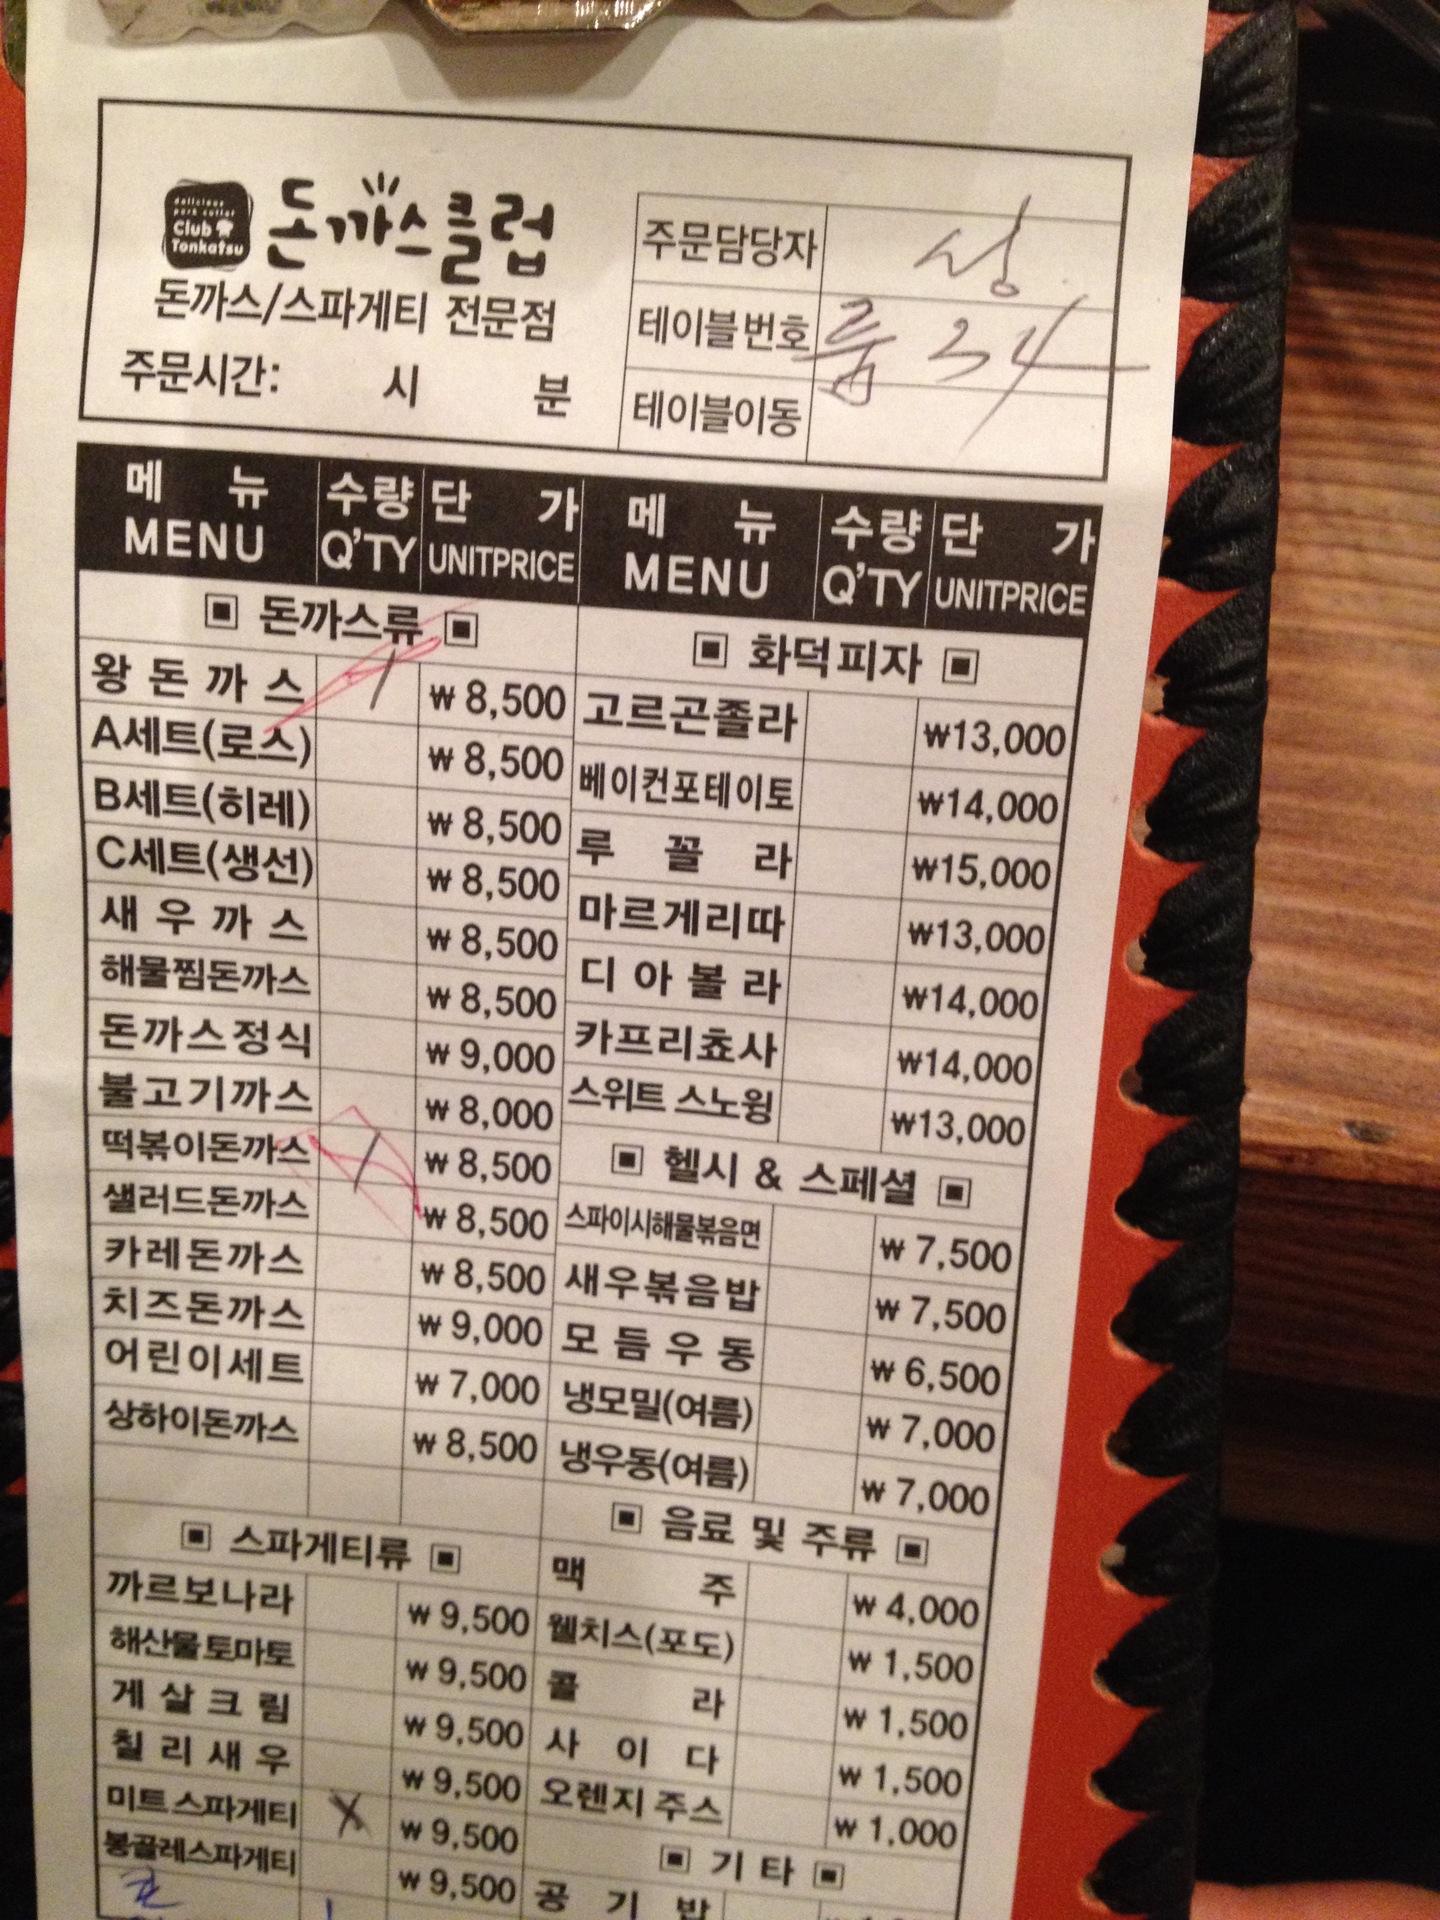 delicious
pork cutlet
Club
Tonkatsu
돈까스클럽
돈까스/스파게티 전문점
주문시간: 시 분
주문담당자 상
테이블번호 룸 34
테이블이동
메 뉴 수량 단 가 메 뉴 수량 단 가
MENU Q'TY UNITPRICE MENU Q'TY UNITPRICE
▣ 돈까스류 ▣
왕돈까스 / ₩8,500
A세트(로스) ₩8,500
B세트(히레) ₩8,500
C세트(생선) ₩8,500
새우까스 ₩8,500
해물찜돈까스 ₩8,500
돈까스정식 ₩9,000
불고기까스 ₩8,000
떡볶이돈까스 / ₩8,500
샐러드돈까스 ₩8,500
카레돈까스 ₩8,500
치즈돈까스 ₩9,000
어린이세트 ₩7,000
상하이돈까스 ₩8,500
▣ 스파게티류 ▣
까르보나라 ₩9,500
해산물토마토 ₩9,500
게살크림 ₩9,500
칠리새우 ₩9,500
미트스파게티 X ₩9,500
봉골레스파게티 ₩9,500
▣ 화덕피자 ▣
고르곤졸라 ₩13,000
베이컨포테이토 ₩14,000
루꼴라 ₩15,000
마르게리따 ₩13,000
디아볼라 ₩14,000
카프리쵸사 ₩14,000
스위트 스노윙 ₩13,000
▣ 헬시 & 스페셜 ▣
스파이시해물볶음면 ₩7,500
새우볶음밥 ₩7,500
모듬우동 ₩6,500
냉모밀(여름) ₩7,000
냉우동(여름) ₩7,000
▣ 음료 및 주류 ▣
맥주 ₩4,000
웰치스(포도) ₩1,500
콜라 ₩1,500
사이다 ₩1,500
오렌지 주스 ₩1,000
▣ 기 타 ▣
공기밥